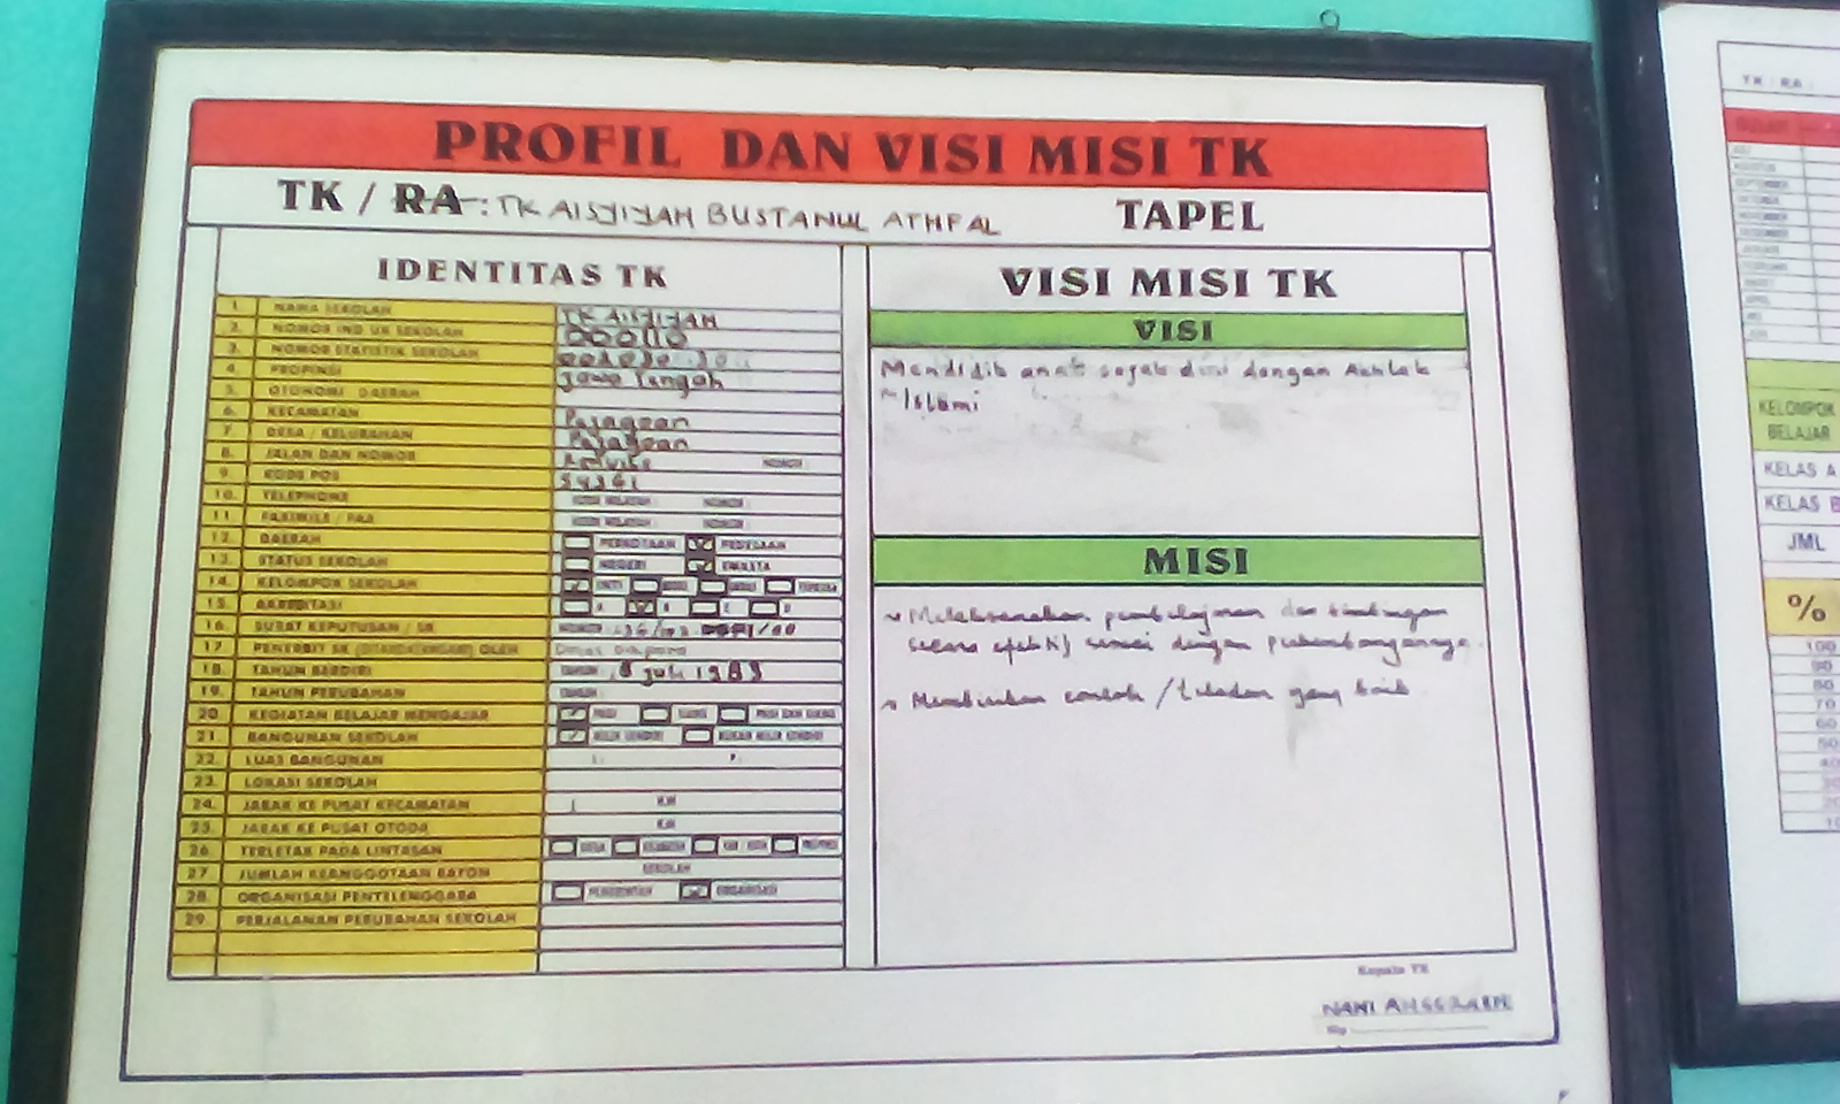 PROFIL DAN VISI MISI TK
TK / RA : TK AISYIYAH BUSTANUL ATHFAL TAPEL
IDENTITAS TK
1. NAMA SEKOLAH TK AISYIYAH
2. NOMOR INDUK SEKOLAH 000110
3. NOMOR STATISTIK SEKOLAH
4. PROPINSI Jawa Tengah
5. OTONOMI DAERAH
6. KECAMATAN Pejagoan
7. DESA / KELURAHAN Pejagoan
8. JALAN DAN NOMOR NOMOR :
9. KODE POS 54361
10. TELEPHONE KODE WILAYAH : NOMOR :
11 FAXIMILE / FAX KODE WILAYAH : NOMOR :
12. DAERAH PERKOTAAN PEDESAAN
13. STATUS SEKOLAH NEGERI SWASTA
14. KELOMPOK SEKOLAH INTI TERBUKA
15. AKREDITASI A B C D
16. SURAT KEPUTUSAN / SK NOMOR :
17 PENERBIT SK (DITANDATANGANI) OLEH
18. TAHUN BERDIRI TAHUN :
19. TAHUN PERUBAHAN TAHUN :
20. KEGIATAN BELAJAR MENGAJAR PAGI SIANG PAGI DAN SIANG
21. BANGUNAN SEKOLAH MILIK SENDIRI BUKAN MILIK SENDIRI
22. LUAS BANGUNAN L : P :
23. LOKASI SEKOLAH
24. JARAK KE PUSAT KECAMATAN 1 KM
25. JARAK KE PUSAT OTODA KM
26. TERLETAK PADA LINTASAN DESA KECAMATAN KAB / KOTA PROPINSI
27 JUMLAH KEANGGOTAAN RAYON SEKOLAH
28. ORGANISASI PENYELENGGARA PEMERINTAH ORGANISASI
29. PERJALANAN PERUBAHAN SEKOLAH
VISI MISI TK
VISI
Mendidik anak sejak dini dengan Akhlak
Islami
MISI
Melaksanakan pembelajaran dan bimbingan
secara efektif sesuai dengan perkembangannya.
Memberikan contoh / teladan yang baik
Kepala TK
NANI ANGGRAENI
Nip
TK / RA :
BULAN
JULI
AGUSTUS
SEPTEMBER
OKTOBER
NOVEMBER
DESEMBER
JANUARI
FEBRUARI
MARET
APRIL
MEI
JUNI
KELOMPOK
BELAJAR
KELAS A
KELAS B
JML
%
100
90
80
70
60
50
40
30
20
10